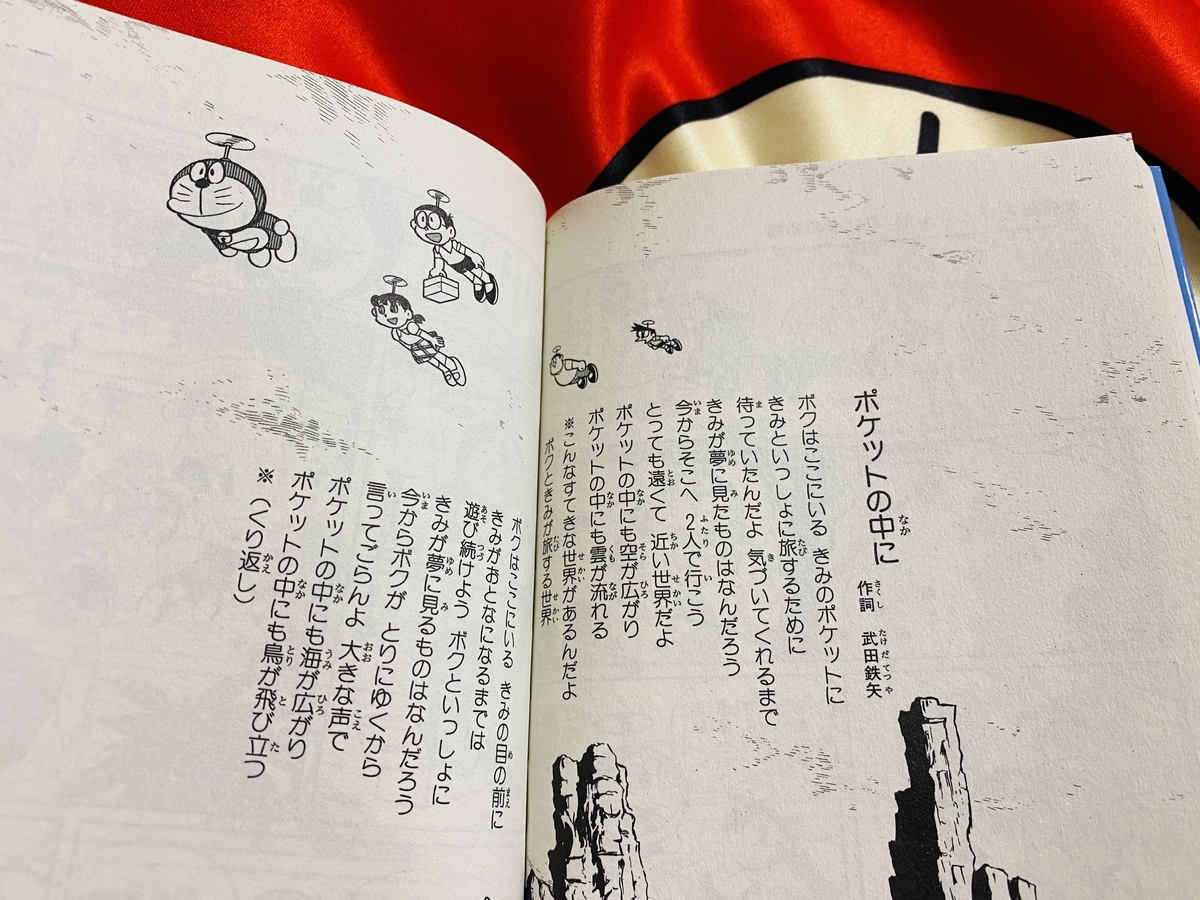 ポケットの中に
作詞 武田鉄矢
ボクはここにいる きみのポケットに
きみといっしょに旅するために
待っていたんだよ 気づいてくれるまで
きみが夢に見たものはなんだろう
今からそこへ 2人で行こう
とっても遠くて 近い世界だよ
ポケットの中にも空が広がり
ポケットの中にも雲が流れる
※こんなすてきな世界があるんだよ
ボクときみが旅する世界
ボクはここにいる きみの目の前に
きみがおとなになるまでは
遊び続けよう ボクといっしょに
きみが夢に見るものはなんだろう
今からボクが とりにゆくから
言ってごらんよ 大きな声で
ポケットの中にも海が広がり
ポケットの中にも鳥が飛び立つ
※(くり返し)